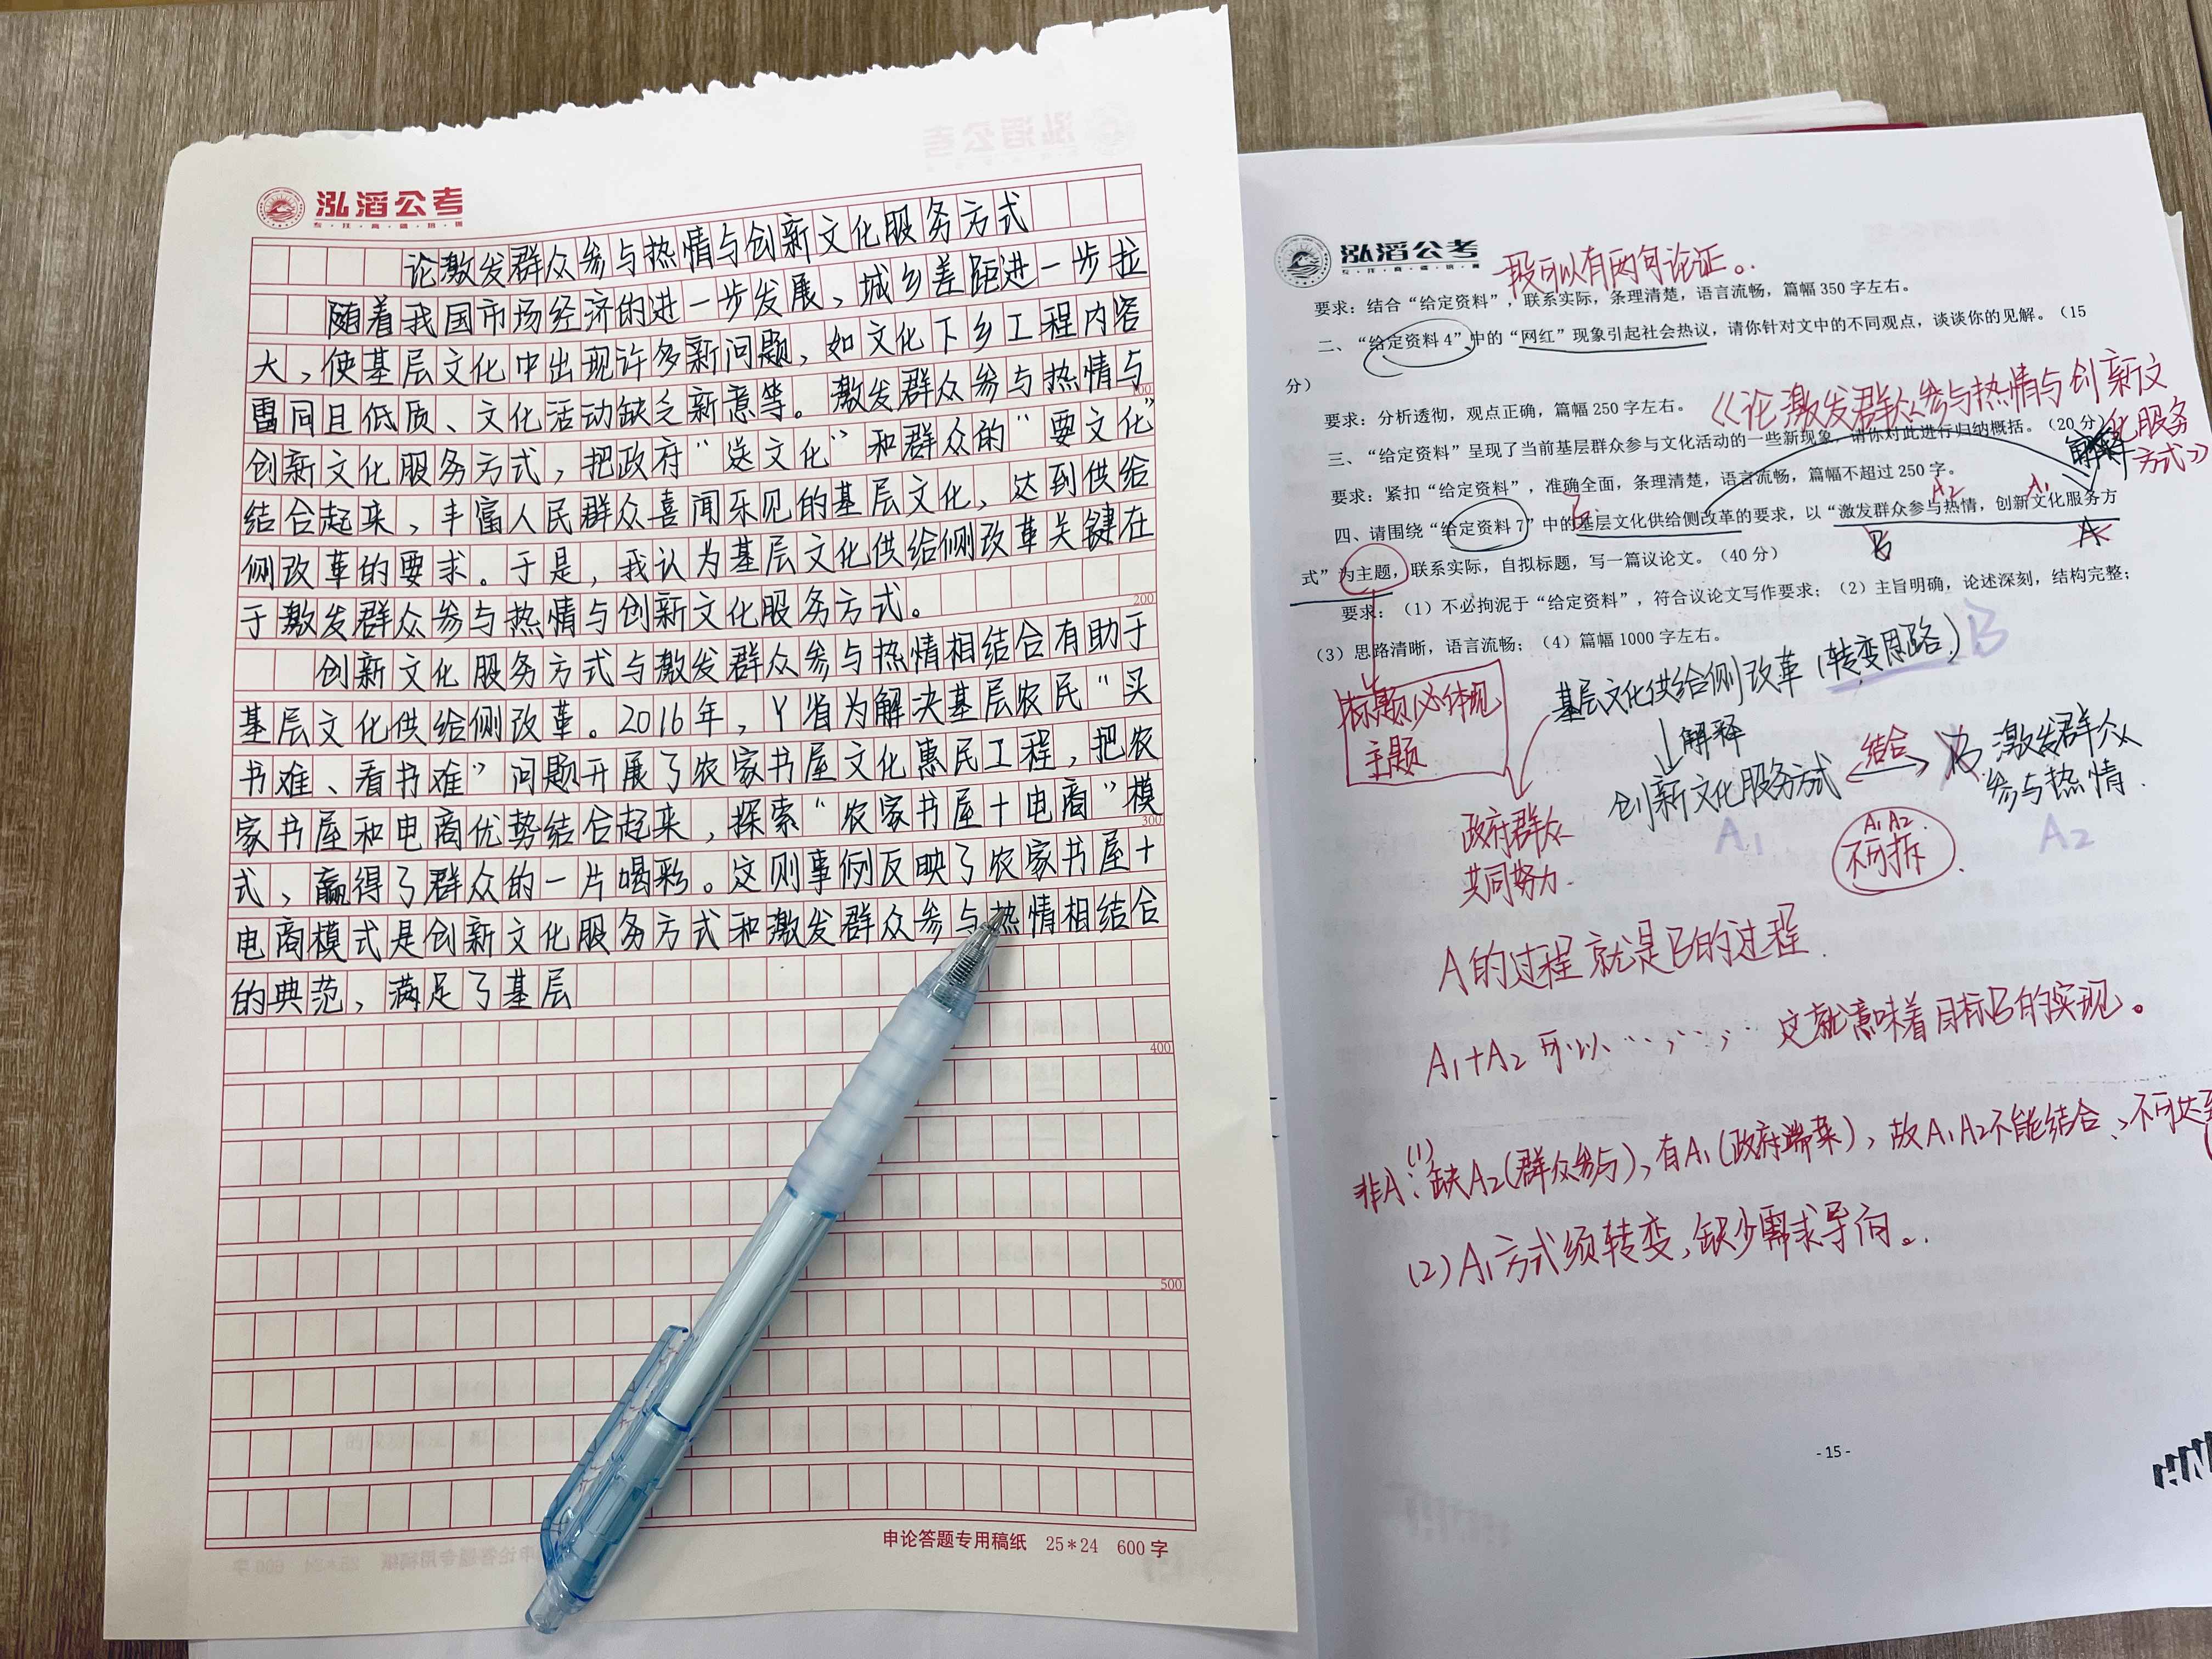 泓滔公考
论激发群众参与热情与创新文化服务方式
随着我国市场经济的进一步发展、城乡差距进一步拉
大,使基层文化中出现许多新问题,如文化下乡工程内容
雷同且低质、文化活动缺乏新意等。激发群众参与热情与
100
创新文化服务方式,把政府“送文化”和群众的“要文化”
结合起来,丰富人民群众喜闻乐见的基层文化,达到供给
侧改革的要求。于是,我认为基层文化供给侧改革关键在
于激发群众参与热情与创新文化服务方式。
200
创新文化服务方式与激发群众参与热情相结合有助于
基层文化供给侧改革。2016年,Y省为解决基层农民“买
书难、看书难”问题开展了农家书屋文化惠民工程,把农
家书屋和电商优势结合起来,探索“农家书屋+电商”模
300
式,赢得了群众的一片喝彩。这则事例反映了农家书屋+
电商模式是创新文化服务方式和激发群众参与热情相结合
的典范,满足了基层
400
500
申论答题专用稿纸 25*24 600字
泓滔公考
一般可以有两句论证。
要求:结合“给定资料”,联系实际,条理清楚,语言流畅,篇幅350字左右。
二、“给定资料4”中的“网红”现象引起社会热议,请你针对文中的不同观点,谈谈你的见解。(15
分)
要求:分析透彻,观点正确,篇幅250字左右。
《论激发群众参与热情与创新文
化服务
方式》
三、“给定资料”呈现了当前基层群众参与文化活动的一些新现象,请你对此进行归纳概括。(20分)
解释
要求:紧扣“给定资料”,准确全面,条理清楚,语言流畅,篇幅不超过250字。
B A2 A1
四、请围绕“给定资料7”中的基层文化供给侧改革的要求,以“激发群众参与热情,创新文化服务方
B A
式”为主题,联系实际,自拟标题,写一篇议论文。(40分)
要求:(1)不必拘泥于“给定资料”,符合议论文写作要求;(2)主旨明确,论述深刻,结构完整;
(3)思路清晰,语言流畅;(4)篇幅1000字左右。
标题必体现
主题
基层文化供给侧改革(转变思路)B
解释
创新文化服务方式 结合 激发群众
参与热情.
A1 A2
政府群众
共同努力.
A1 A2
不可拆.
A的过程就是B的过程.
A1+A2 可以…;…;… 这就意味着目标B的实现。
非A:(1)缺A2(群众参与),有A1(政府端菜),故A1A2不能结合、不可达到
(2)A1方式须转变,缺少需求导向。
- 15 -